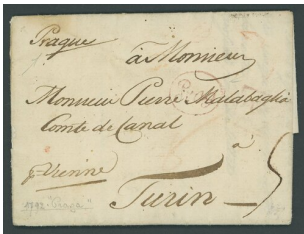 Prague
à Monsieur
Monsieur Pierre Malabaglia
Comte de Canal
à
pr Vienne
Turin
5
1792 "Praga"